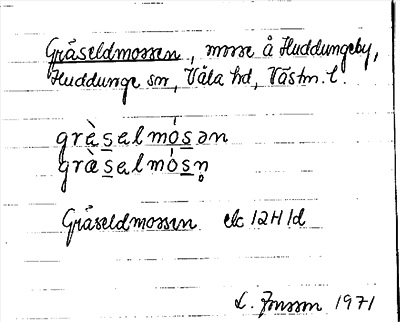 Gräseldmossen, mosse å Huddungeby,
Huddunge sn, Våla hd, Västm. l.
grὲselmósən
grὰselmósn̥
Gräseldmossen ek 12H 1d
L. Jonsson 1971